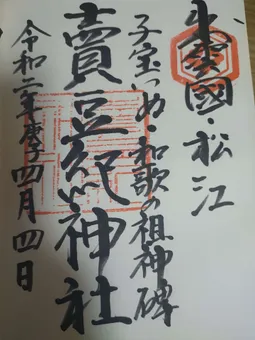 出雲國・松江
子宝つぬ・和歌の祖神碑
賣豆紀神社
令和二年庚子四月四日